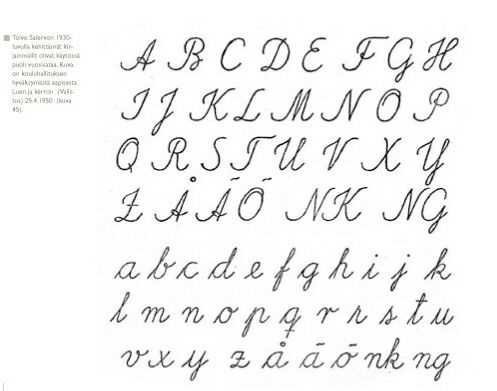 Toivo Salervon 1930-
luvulla kehittämät kir-
jainmallit olivat käytössä
puoli vuosisataa. Kuva
on kouluhallituksen
hyväksymästä oppiesta
Luen ja kerron (Valis-
tus) 25.4.1950 (kuva
45).
A B C D E F G H
I J K L M N O P
Q R S T U V X Y
Z Å Ä Ö NK NG
a b c d e f g h i j k
l m n o p q r r s t u
v x y z å ä ö nk ng